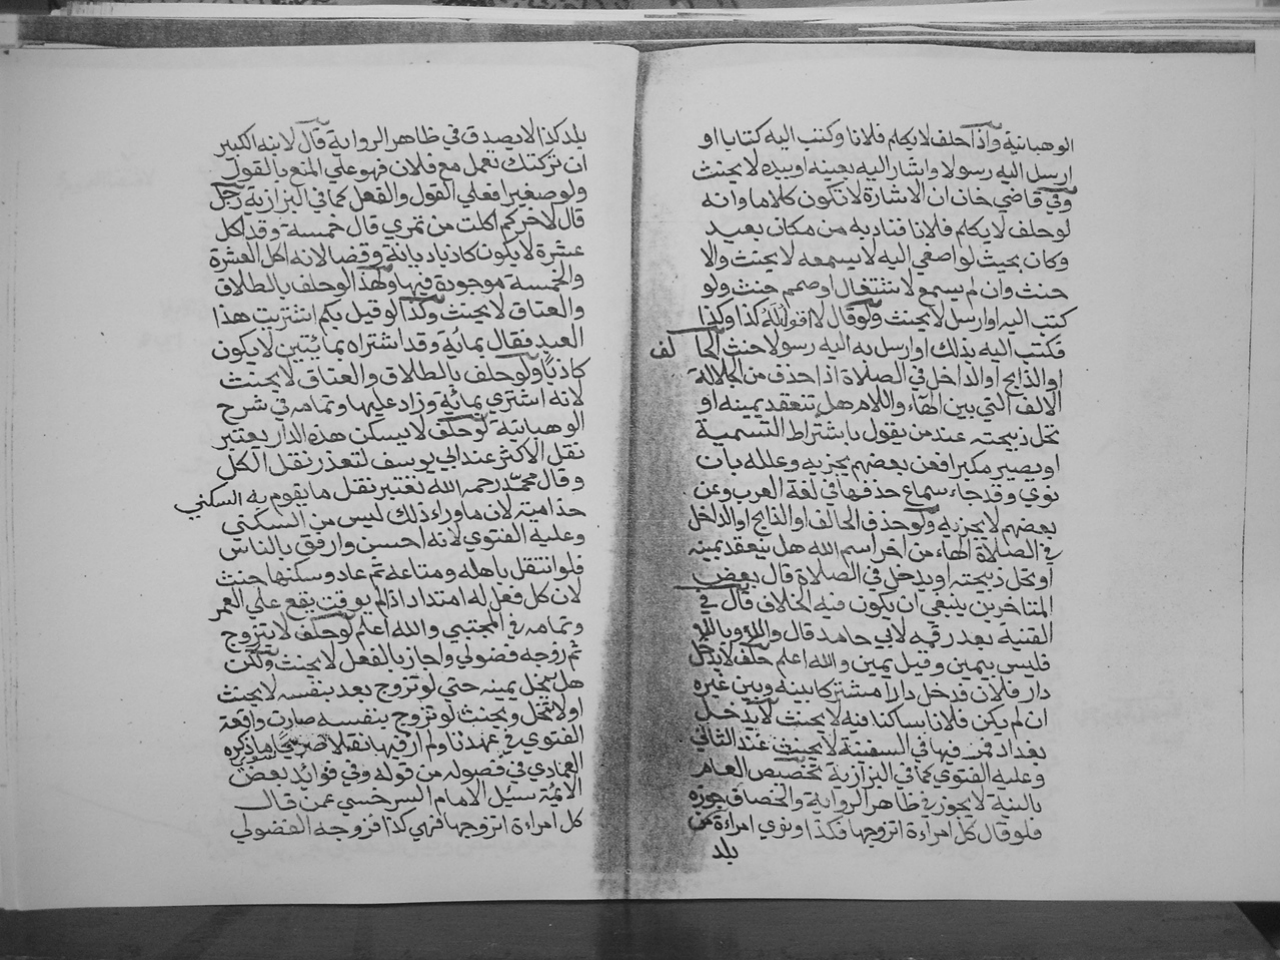 الوهبانية واذا حلف لا يكلم فلانا وكتب اليه كتابا او
ارسل اليه رسولا واشار اليه بعينه او بيده لا يحنث
وفي قاضي خان ان الاشارة لا تكون كلاما وانه
لو حلف لا يكلم فلانا فناديه من مكان بعيد
وكان بحيث لو اصغي اليه لا يسمعه لا يحنث والا
حنث وان لم يسمع لاشتغال او صمم حنث ولو
كتب اليه او ارسل لا يحنث ولو قال لا اقول له كذا وكذا
فكتب اليه بذلك او ارسل به اليه رسولا حنث الحا لف
او الذابح او الداخل في الصلاة اذا حذف من الجلالة
الالف التي بين الهآء واللام هل تنعقد يمينه او
تحل ذبيحته عند من يقول باشتراط التسمية
او يصير مكبرا فعن بعضهم يجزيه وعلله بان
نوي وقد جاء سماع حذفها في لغة العرب وعن
بعضهم لا يجزيه ولو حذف الحالف او الذابح او الداخل
في الصلاة الهاء من اخر اسم الله هل ينعقد يمينه
او تحل ذبيحته او يدخل في الصلاة قال بعض
المتاخرين ينبغي ان يكون فيه الخلاف قال في
القنية بعد رقمه لابي حامد قال واللو وباللو
فليس بيمين وقيل يمين والله اعلم حلف لا يدخل
دار فلان فدخل دارا مشتركا بينه وبين غيره
ان لم يكن فلانا ساكنا فيه لا يحنث لا يدخل
بغداد فمر فيها في السفينة لا يحنث عند الثاني
وعليه الفتوي كما في البزازية تخصيص العام
بالنية لا يجوز في ظاهر الرواية والخصاف جوزه
فلو قال كل امراءة اتزوجها فكذا ونوي امراءة من
بلد
بلد كذا لا يصدق في ظاهر الرواية قال لابنه الكبير
ان تركتك تعمل مع فلان فهو علي المنع بالقول
ولو صغيرا فعلي القول والفعل كما في البزازية رجل
قال لاخر كم اكلت من تمري قال خمسة وقد اكل
عشرة لا يكون كاذبا ديانة وقضا لانه اكل العشرة
والخمسة موجودة فيها ولهذا لو حلف بالطلاق
والعتاق لا يحنث وكذا لو قيل بكم اشتريت هذا
العبد فقال بمائة وقد اشتراه بمائتين لا يكون
كاذبا ولو حلف بالطلاق والعتاق لا يحنث
لانه اشتري بمائة وزاد عليها وتمامه في شرح
الوهبانية لو حلف لا يسكن هذه الدار يعتبر
نقل الاكثر عند ابي يوسف لتعذر نقل الكل
وقال محمد رحمه الله تعتبر نقل ما يقوم به السكني
لان ما وراء ذلك ليس من السكني
وعليه الفتوي لانه احسن وارفق بالناس
فلو انتقل باهله ومتاعه ثم عاد وسكنها حنث
لان كل فعل له امتداد اذا لم يوقت يقع علي العمر
وتمامه في المجتبي والله اعلم لو حلف لا يتزوج
ثم زوجه فضولي واجاز بالفعل لا يحنث ولكن
هل تنحل يمينه حتي لو تزوج بعد بنفسه لا يحنث
او لا تنحل ويحنث لو تزوج بنفسه صارت واقعة
الفتوي في عهدنا ولم ار فيها نقلا صريحا سوي ما ذكره
العمادي في فصوله من قوله وفي فوائد بعض
الائمة سئل الامام السرخسي عمن قال
كل امراءة اتزوجها فهي كذا فزوجه الفضولي